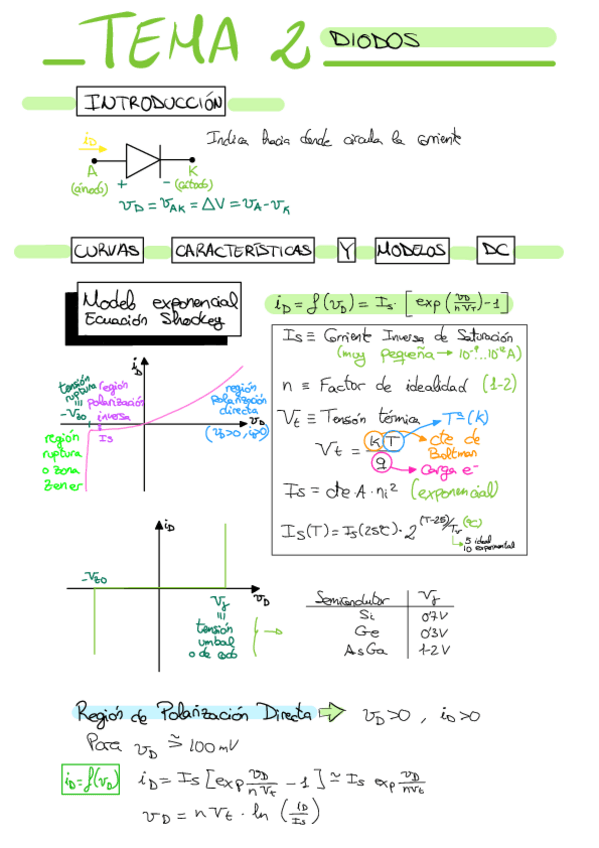 _TEMA 2 DIODOS
INTRODUCCIÓN
Indica hacia donde circula la corriente
iD
A
(ánodo)
+
-
K
(cátodo)
vD = vAK = ΔV = vA - vK
CURVAS CARACTERÍSTICAS Y MODELOS DC
Modelo exponencial
Ecuación Shockley
iD = f(vD) = Is · [exp(vD/nVT) - 1]
Is ≡ Corriente Inversa de Saturación
(muy pequeña → 10⁻⁹...10⁻¹² A)
n ≡ Factor de idealidad (1-2)
Vt ≡ Tensión térmica
T ≡ (K)
Vt = kT/q
cte de
Boltman
carga e⁻
Is = cte A · ni² (exponencial)
Is(T) = Is(25ºC) · 2^(T-25)/Tr (ºC)
5 ideal
10 experimental
iD
tensión
ruptura
=
-Vzo
región
polarización
inversa
Is
región
polarización
directa
vD
(vD>0, iD>0)
región
ruptura
o zona
zener
iD
-Vzo
Vγ
vD
tensión
umbral
o de codo
Semiconductor Vγ
Si 0'7V
Ge 0'3V
AsGa 1-2V
Región de Polarización Directa ⇒ vD>0, iD>0
Para vD ≥ 100mV
iD = f(vD) iD = Is [exp vD/nVt - 1] ≃ Is exp vD/nVt
vD = n Vt · ln (iD/Is)